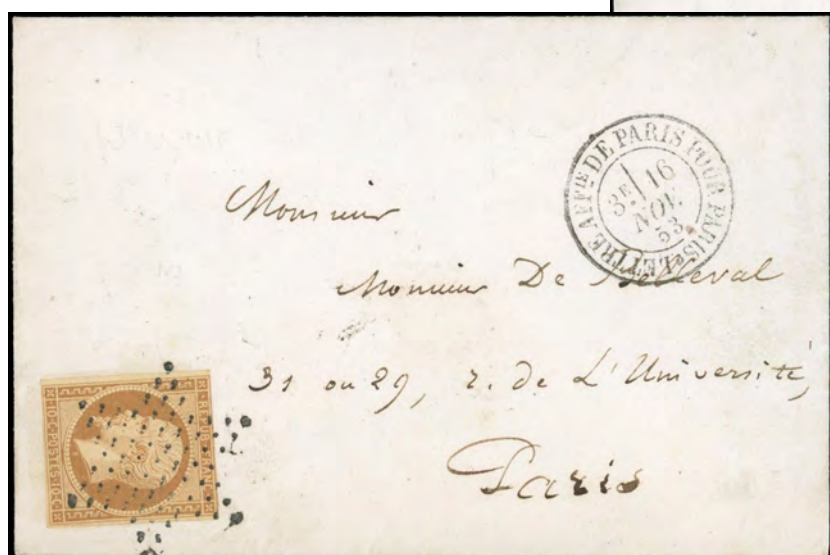 LETTRE AFFIE DE PARIS POUR PARIS
3E 16
NOV.
53
Monsieur
Monsieur De Belleval
31 ou 29, r. de L'Université,
Paris
REPUB. FRANC.
10·C·POSTES·10·C